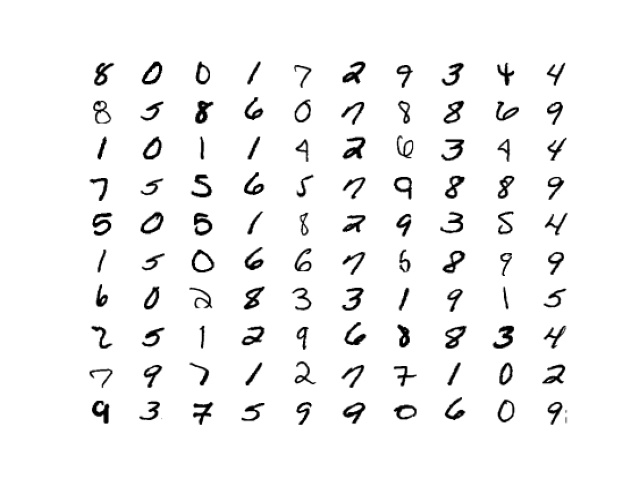 8 0 0 1 7 2 9 3 4 4
8 5 8 6 0 7 8 8 6 9
1 0 1 1 4 2 6 3 4 4
7 5 5 6 5 7 9 8 8 9
5 0 5 1 8 2 9 3 5 4
1 5 0 6 6 7 5 8 9 9
6 0 2 8 3 3 1 9 1 5
2 5 1 2 9 6 8 8 3 4
7 9 7 1 2 7 7 1 0 2
9 3 7 5 9 9 0 6 0 9